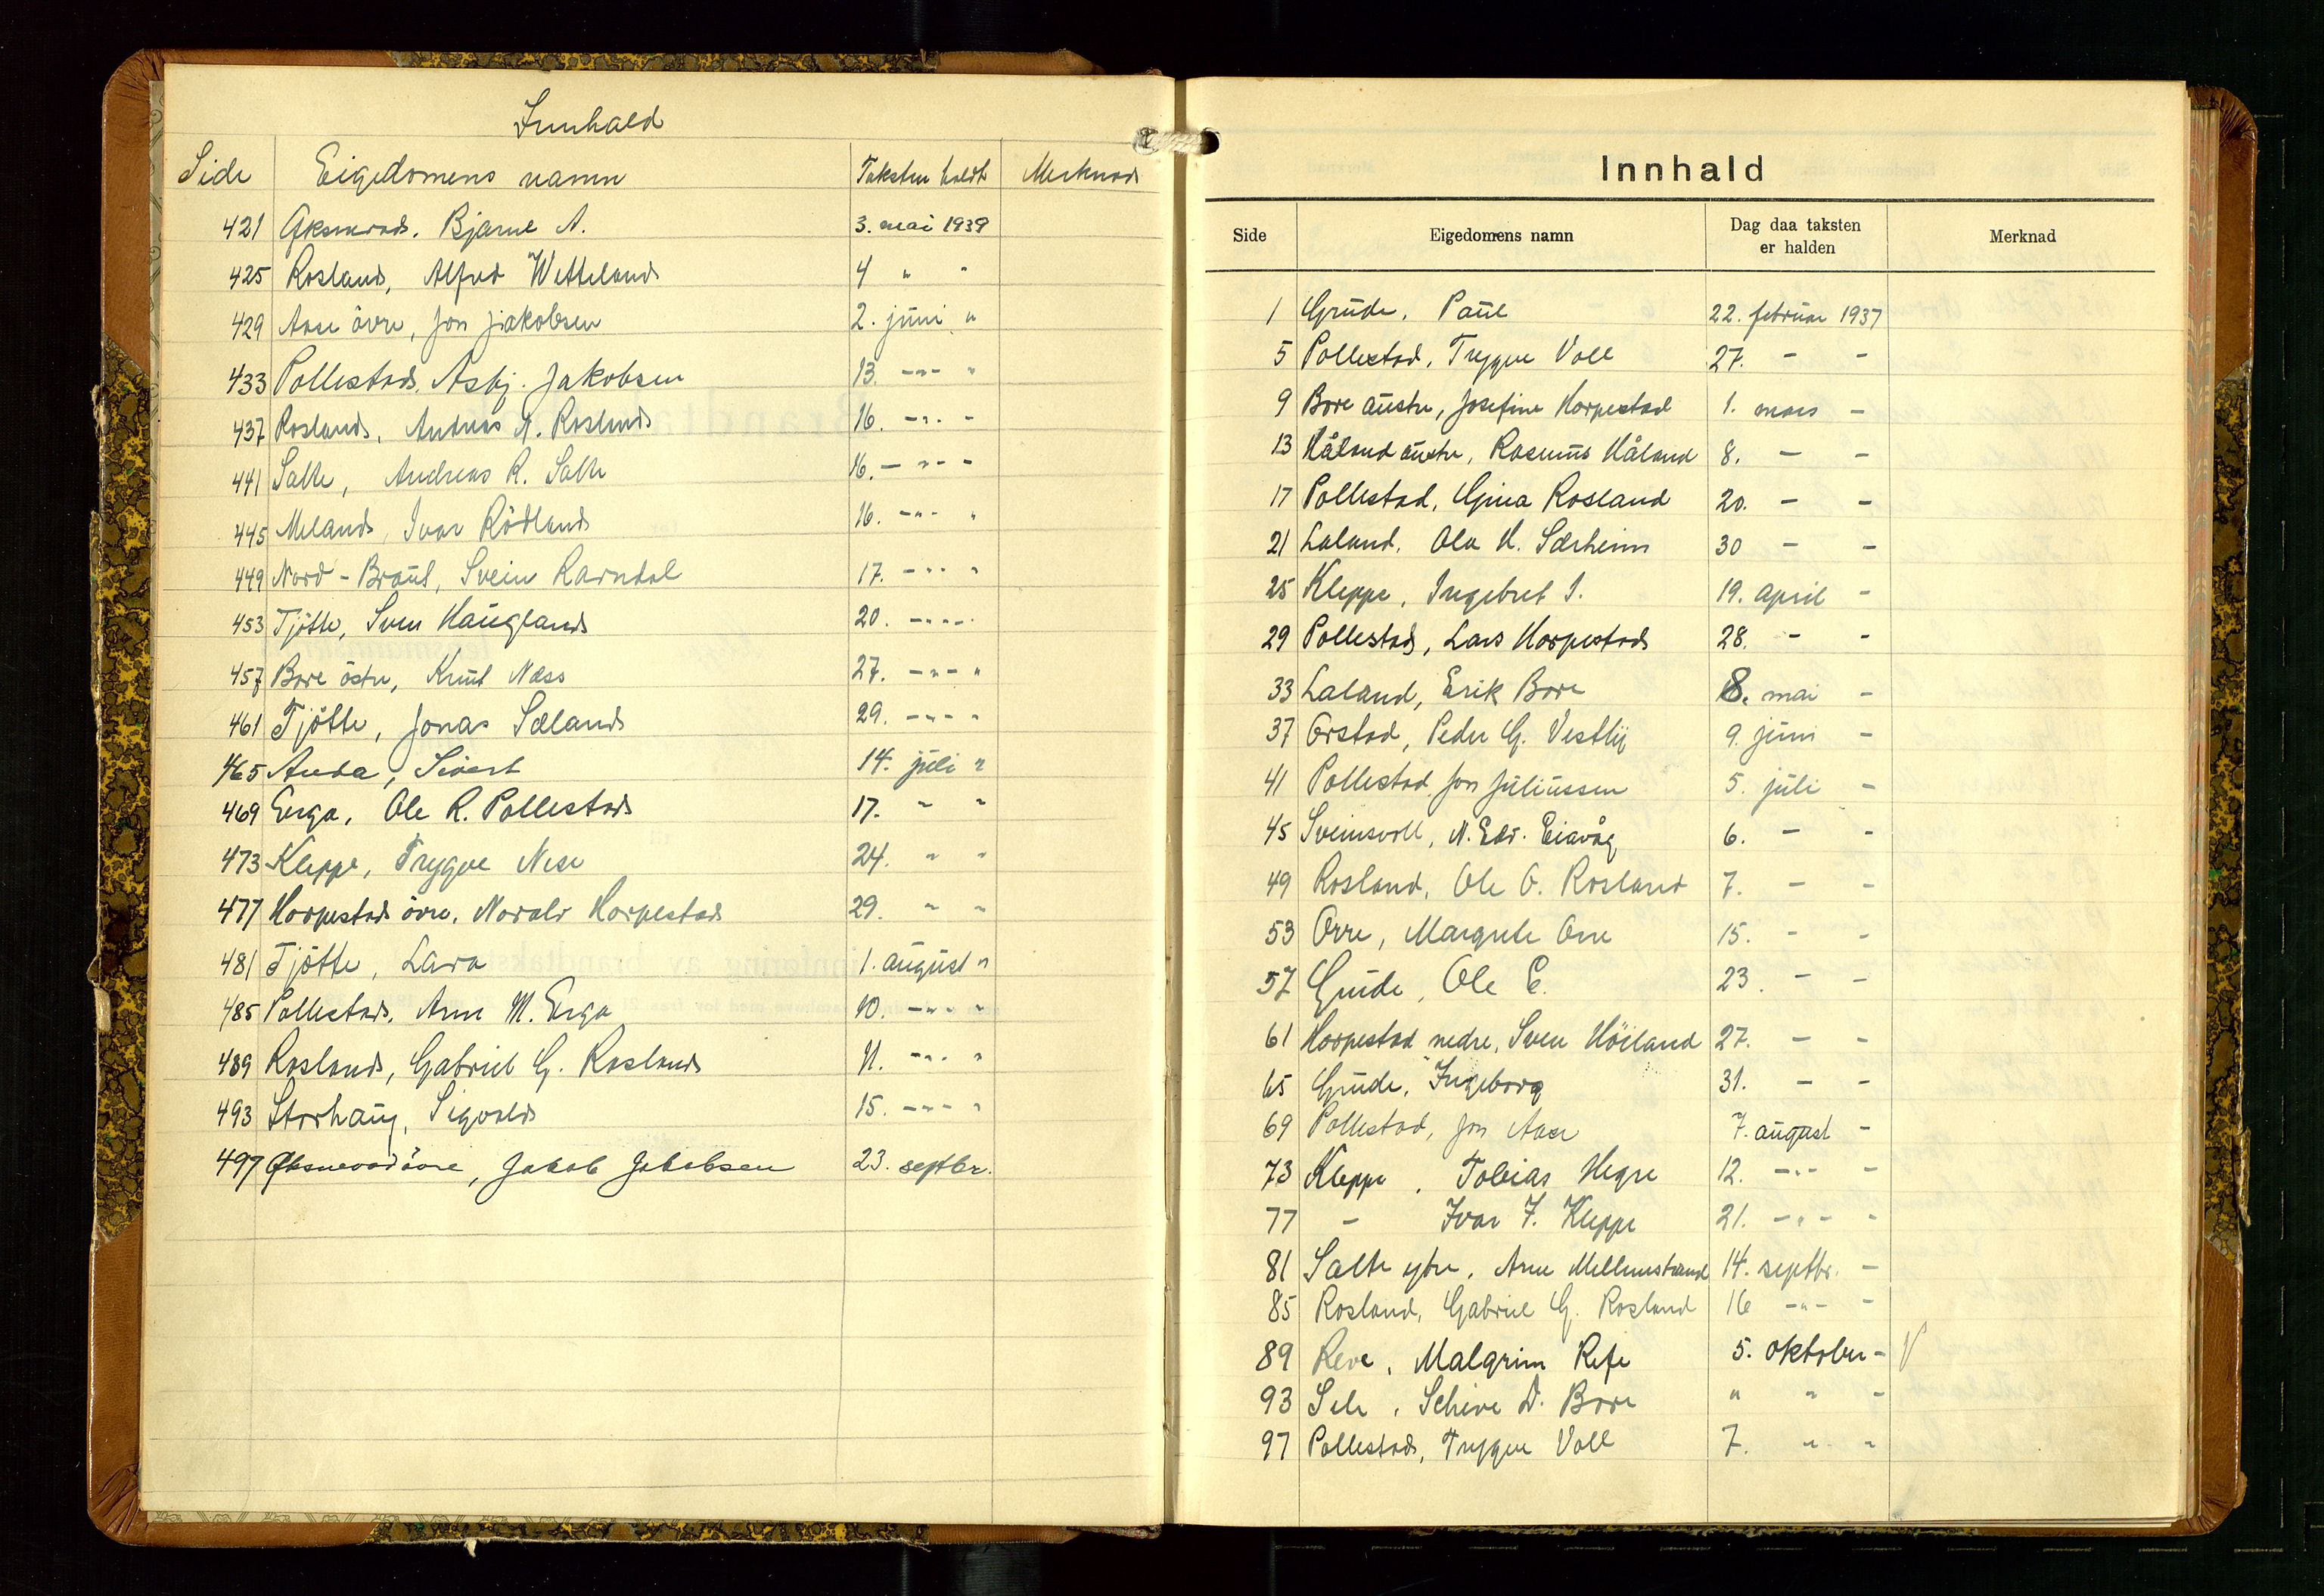 Innhald
Side Eigedomens namn Taksten holdt Merknad
421 Øksnevad, Bjarne A. 3. mai 1939
425 Rosland, Alfred Wetteland 4 " "
429 Aase övre, Jon Jakobsen 2. juni "
433 Pollestad, Asbj. Jakobsen 13. -"- "
437 Rosland, Andreas A. Rosland 16. -"- -
441 Salte, Andreas R. Salte 16. - "- -
445 Meland, Ivar Rödland 16. -"- "
449 Nord-Braut, Svein Ravndal 17. -"- "
453 Tjötte, Sven Haugland 20. -"-"
457 Bore östre, Knut Næss 27. -"- "
461 Tjötte, Jonas Sæland 29. -"- "
465 Anda, Sivert 14. juli "
469 Erga, Ole R. Pollestad 17. " "
473 Kleppe, Trygve Nese 24. " "
477 Horpestad övre, Norald Horpestad 29. " "
481 Tjötte, Lara 1. august "
485 Pollestad, Arne M. Erga 10. -"- "
489 Rosland, Gabriel G. Rosland 11. -"- "
493 Storhaug, Sigvald 15. -"- "
497 Øksnevad övre, Jakob Jakobsen 23. septbr.
Innhald
Side Eigedomens namn Dag daa taksten er halden Merknad
1 Grude, Paul 22. februar 1937
5 Pollestad, Trygve Voll 27. - -
9 Bore austre, Josefine Horpestad 1. mars -
13 Håland austre, Rasmus Håland 8. - -
17 Pollestad, Gina Rosland 20. - -
21 Laland, Ola H. Særheim 30 - -
25 Kleppe, Ingebret I. 19. april -
29 Pollestad, Lars Horpestad 28. - -
33 Laland, Erik Bore 8. mai -
37 Orstad, Peder G. Vestly 9. juni -
41 Pollestad, Jon Juliussen 5. juli -
45 Sveinsvoll, N. Edv. Eiavåg 6. - -
49 Rosland, Ole O. Rosland 7. - -
53 Orre, Margrete Orre 15. - -
57 Grude, Ole E. 23. - -
61 Horpestad nedre, Sven Höiland 27. - -
65 Grude, Ingeborg 31. - -
69 Pollestad, Jon Aase 7. august -
73 Kleppe, Tobias Hegre 12. -"- -
77 - Ivar T. Kleppe 21. -"- -
81 Salte ytre, Arne Mellemstrand 14. septbr. -
85 Rosland, Gabriel G. Rosland 16 -"- -
89 Reve, Malgrim Refe 5. oktober - V
93 Sele, Scheve D. Bore " " -
97 Pollestad, Trygve Voll 7. " "